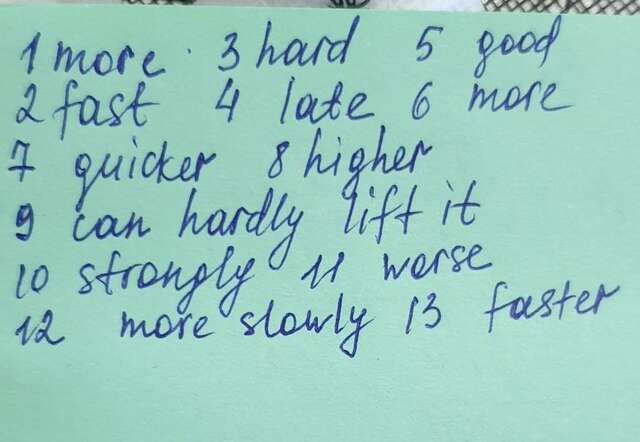 1 more 3 hard 5 good
2 fast 4 late 6 more
7 quicker 8 higher
9 can hardly lift it
10 strongly 11 worse
12 more slowly 13 faster